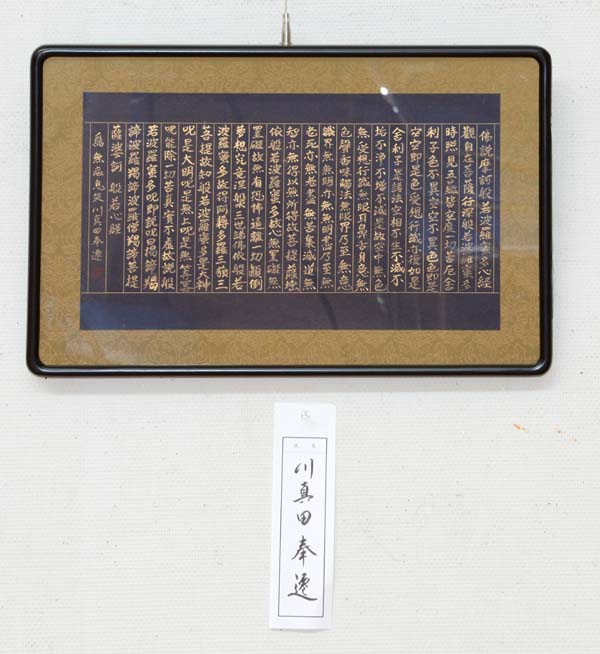 佛說摩訶般若波羅蜜多心經
觀自在菩薩行深般若波羅蜜多
時照見五蘊皆空度一切苦厄舍
利子色不異空空不異色色即是
空空即是色受想行識亦復如是
舍利子是諸法空相不生不滅不
垢不淨不增不減是故空中無色
無受想行識無眼耳鼻舌身意無
色聲香味觸法無眼界乃至無意
識界無無明亦無無明盡乃至無
老死亦無老死盡無苦集滅道無
智亦無得以無所得故菩提薩埵
依般若波羅蜜多故心無罣礙無
罣礙故無有恐怖遠離一切顛倒
夢想究竟涅槃三世諸佛依般若
波羅蜜多故得阿耨多羅三藐三
菩提故知般若波羅蜜多是大神
呪是大明呪是無上呪是無等等
呪能除一切苦真實不虛故說般
若波羅蜜多呪即說呪曰揭諦揭
諦波羅揭諦波羅僧揭諦菩提
薩婆訶 般若心經
為無病息災川真田奉遷
川真田奉遷